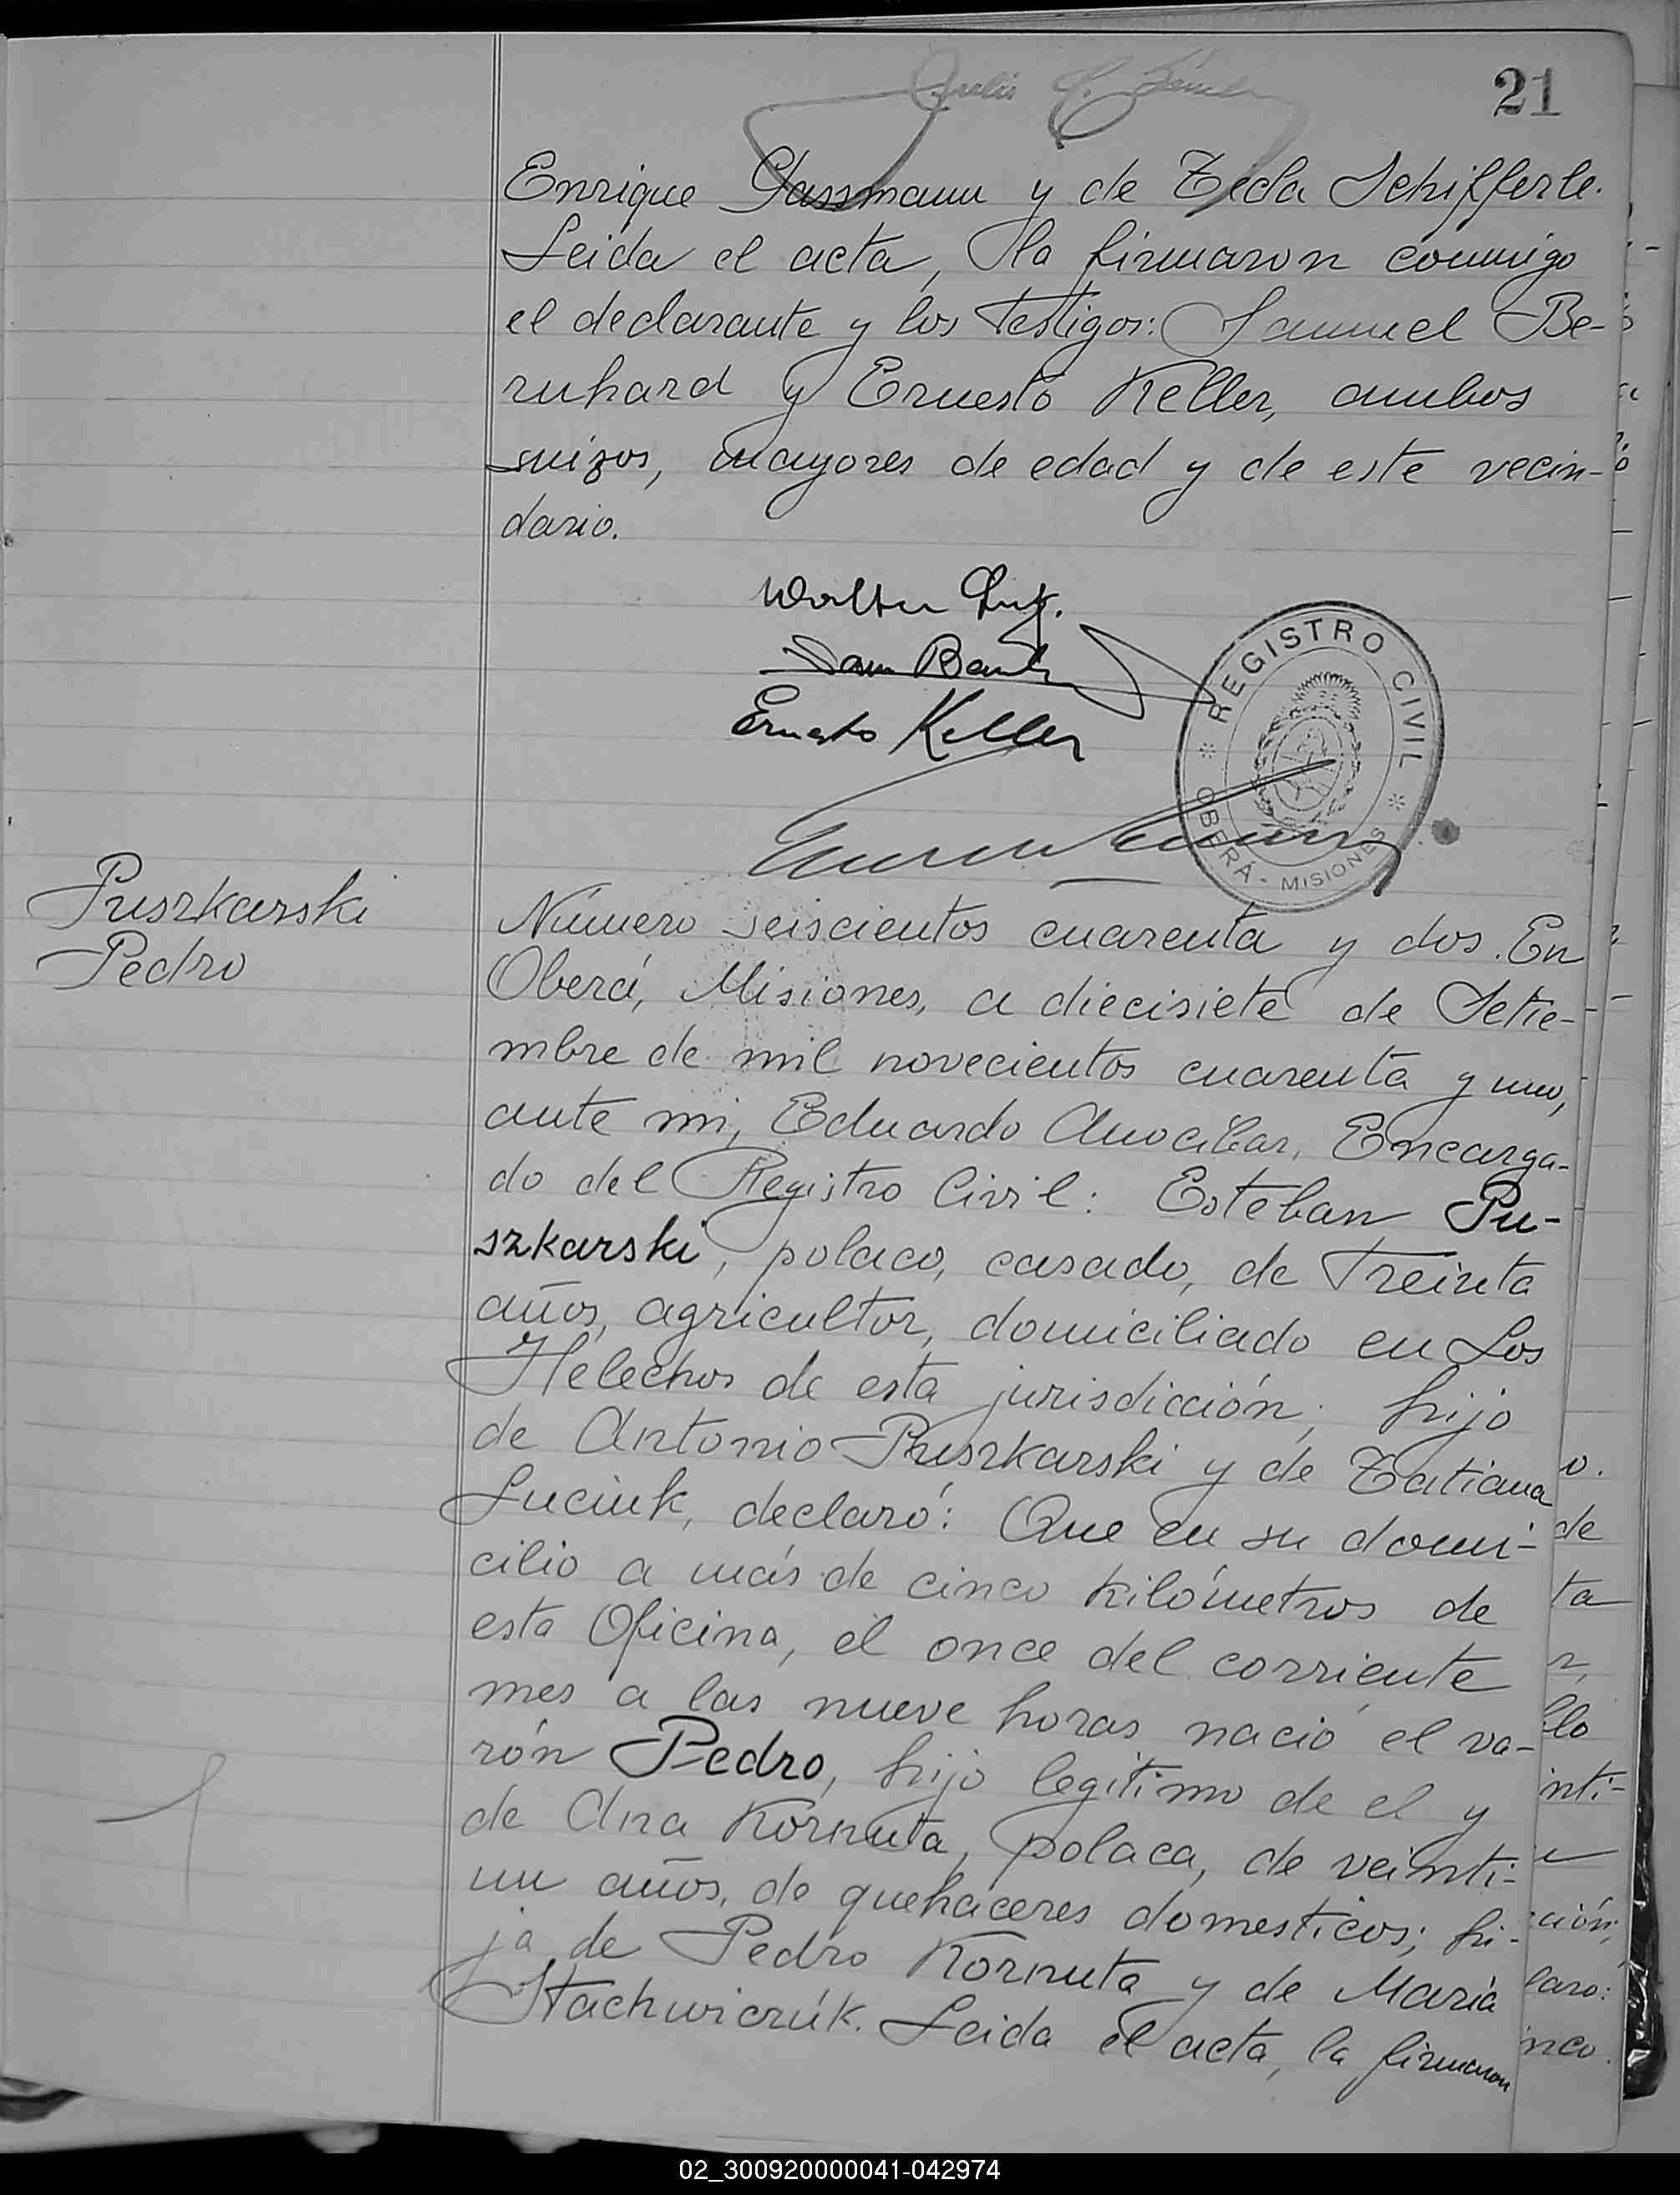 21
Enrique Gassmann y de Tecla Schifferle.
Leida el acta, la firmaron conmigo
el declarante y los testigos: Samuel Be-
rnhard y Ernesto Keller, ambos
suizos, mayores de edad y de este vecin-
dario.
Walter
Sam
Ernesto Keller
REGISTRO CIVIL
OBERÁ - MISIONES
Puszkarski
Pedro
Número seiscientos cuarenta y dos. En
Oberá, Misiones, a diecisiete de Setie-
mbre de mil novecientos cuarenta y uno,
ante mi, Eduardo Anocibar, Encarga-
do del Registro Civil: Esteban Pu-
szkarski, polaco, casado, de treinta
años, agricultor, domiciliado en Los
Helechos de esta jurisdicción; hijo
de Antonio Puszkarski y de Tatiana
Luciuk, declaró: Que en su domi-
cilio a más de cinco kilómetros de
esta Oficina, el once del corriente
mes a las nueve horas nació el va-
rón Pedro, hijo legitimo de el y
de Ana Kornuta, polaca, de veinti-
un años, de quehaceres domesticos; hi-
ja de Pedro Kornuta y de Maria
Stachwiczúk. Leida el acta, la firmaron
o.
de
ta
llo
inti-
ción;
laro:
nco.
02_300920000041-042974